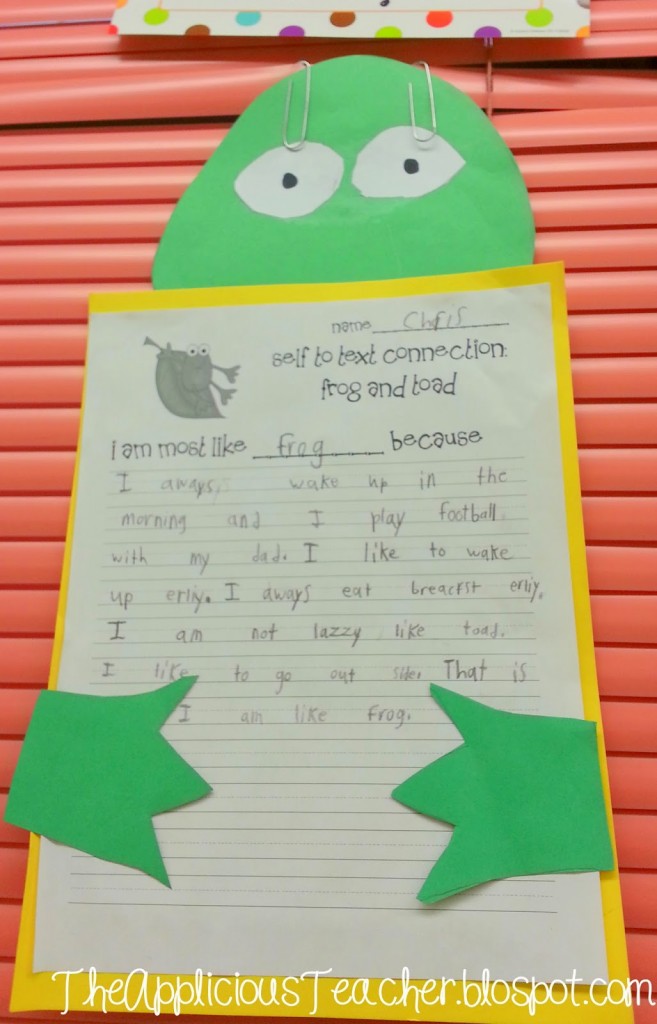 name Chris
self to text connection:
frog and toad
I am most like frog because
I aways wake up in the
morning and I play football
with my dad. I like to wake
up erliy. I aways eat breacfst erliy.
I am not lazzy like toad.
I like to go out side. That is
I am like frog.
TheAppliciousTeacher.blogspot.com